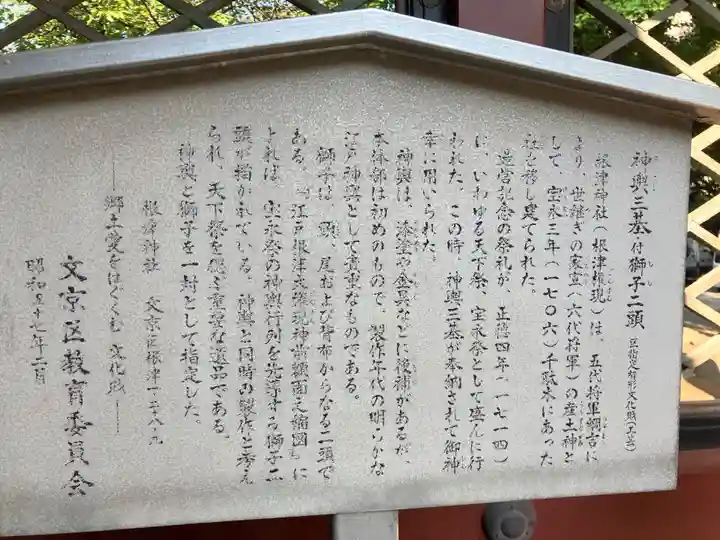 神輿三基 付獅子二頭 区指定有形文化財(工芸)
根津神社(根津権現)は、五代将軍綱吉に
より、世継ぎの家宣(六代将軍)の産土神と
して、宝永三年(一七〇六)千駄木にあった
社を移し建てられた。
造営記念の祭礼が、正徳四年(一七一四)
に、いわゆる天下祭、宝永祭として盛んに行
われた。この時、神輿三基が奉納されて御神
幸に用いられた。
神輿は、漆塗や金具などに後補があるが、
本体部は初めのもので、製作年代の明らかな
江戸神輿として貴重なものである。
獅子は、頭、尾および背布からなる二頭で
ある。『江戸根津大権現神前額面之縮図』に
よれば、宝永祭の神輿行列を先導する獅子二
頭が描かれている。神輿と同時の製作と考え
られ、天下祭を偲ぶ重要な遺品である。
神輿と獅子を一対として指定した。
根津神社 文京区根津一-二八-九
――郷土愛をはぐくむ文化財――
文京区教育委員会
昭和五十七年二月